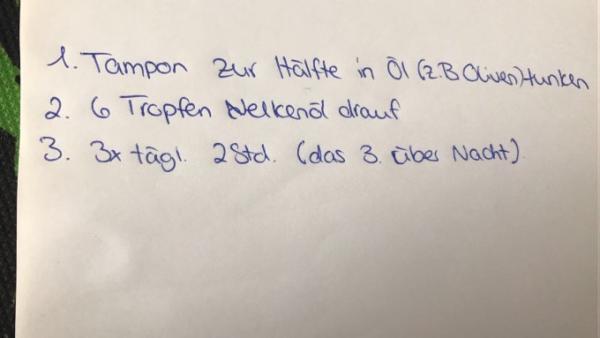 1. Tampon zur Hälfte in Öl (z.B Oliven) tunken
2. 6 Tropfen Nelkenöl drauf
3. 3x tägl. 2 Std. (das 3. über Nacht).